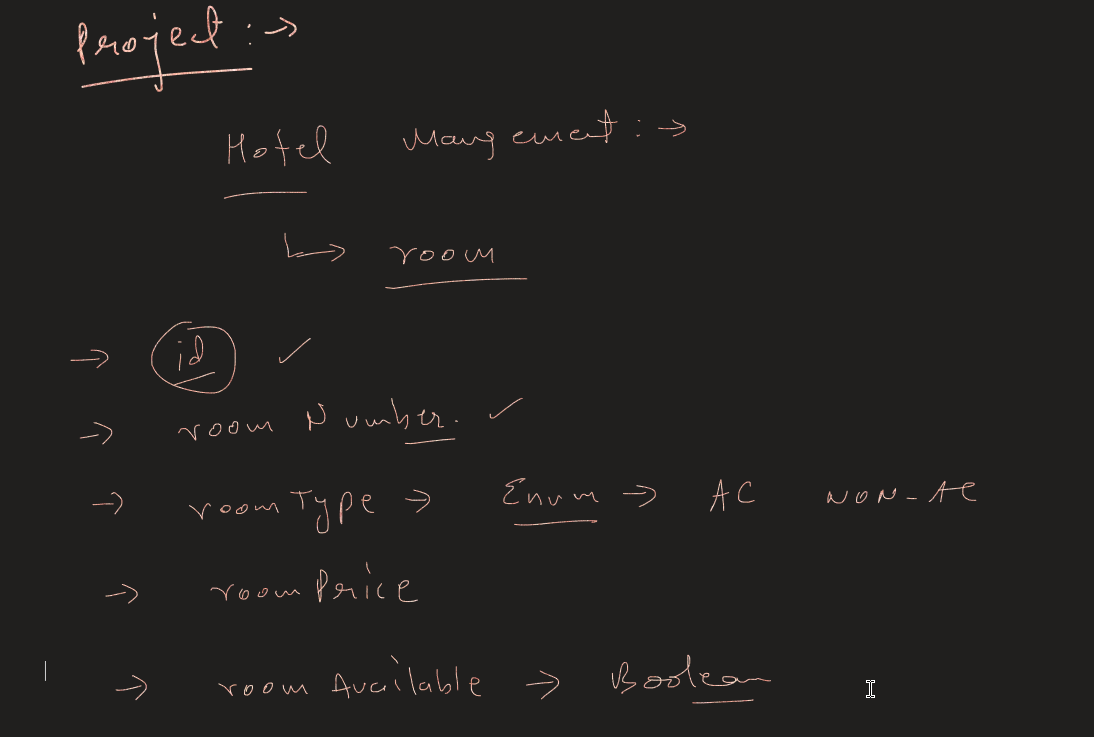 Project :→
Hotel Mangement :→
↳ room
→ id ✓
→ room Number. ✓
→ roomType → Enum → AC NON-AC
→ roomPrice
→ room Available → Boolean